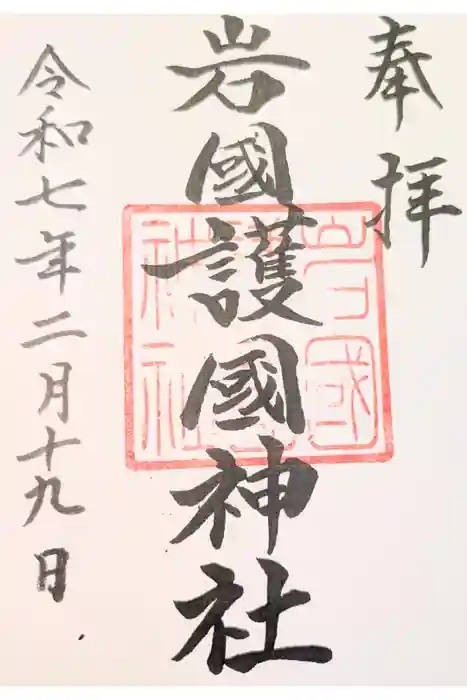 奉拝
岩國護國神社
令和七年二月十九日